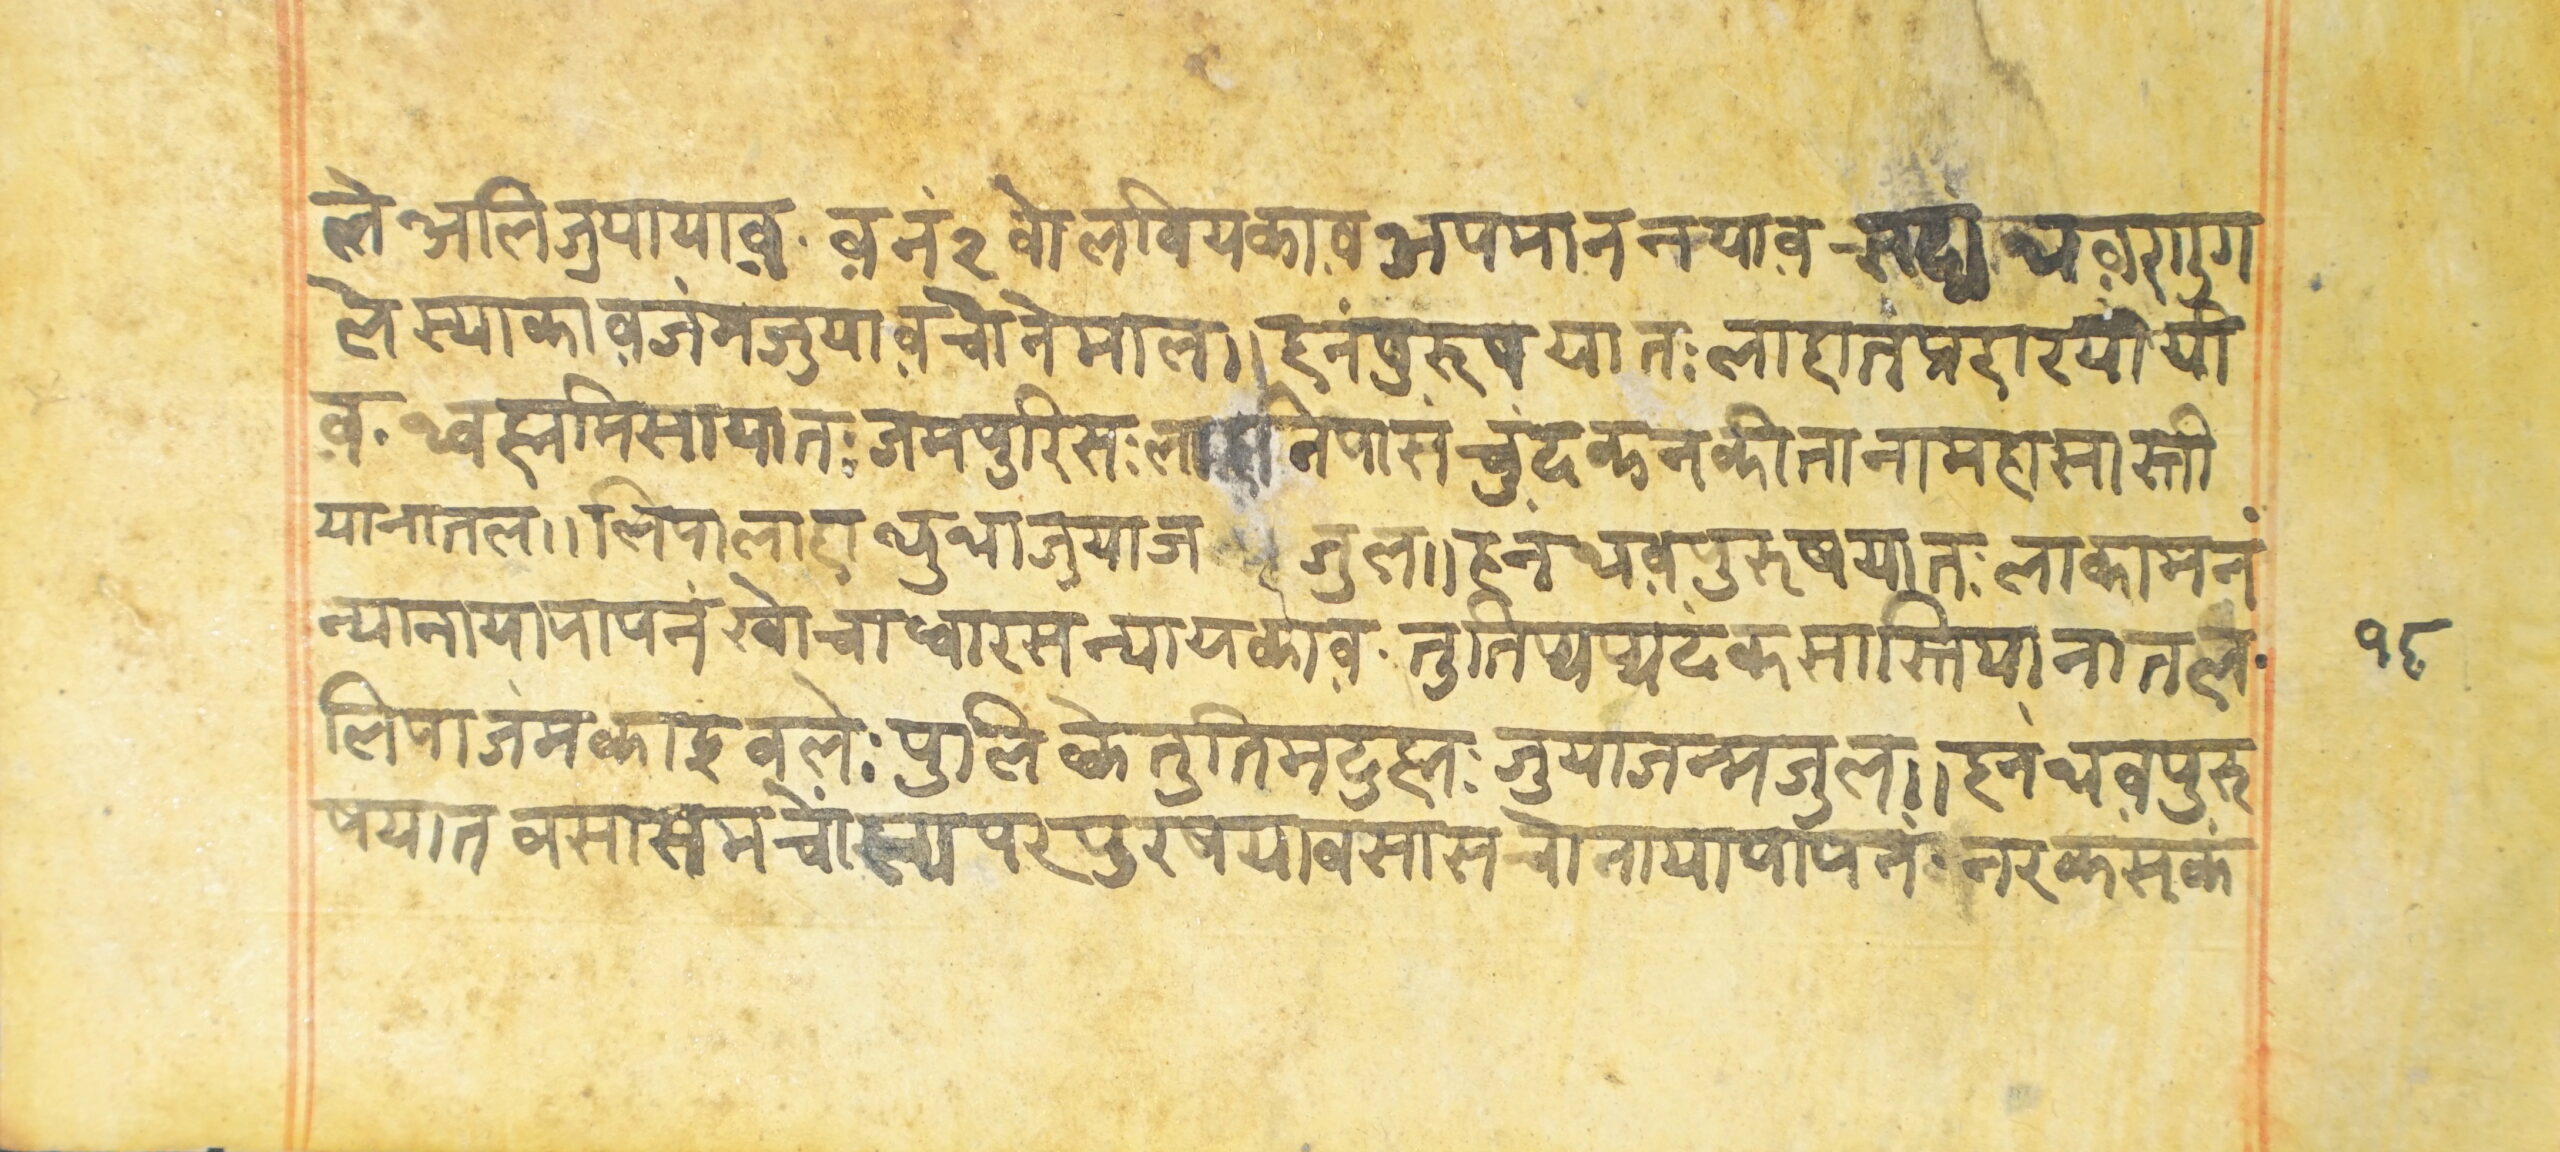 ले अलि जुया याव. वनं२ वोलविय काव अपमान नयाव थव राग
ले स्याकाव जंम जुयाव चोने माल।। हनं पुरूष यातः लाहातं प्रहार यायी
व. थ्व ह्म मिसायातः जमपुरिसः ला निपासं चुंद कन कीताना महासास्ती
याना तल।। लिपा लाहा थ्युथा जुया ज जुल।। हनं थव पुरूष यातः लाकामनं
न्याना या पापनं खोचा ध्वारस न्यायकाव. तुति प्यप्यदंक सास्तियाना तल.
लिपा जंमकाइवलेः पुलिं केतुति मदुह्मः जुया जन्म जुल।। हनं थव पुरू
षयात वसासं मचोंस्य परपुरषया वसास चोना या पापनं. नरकसकं
१६